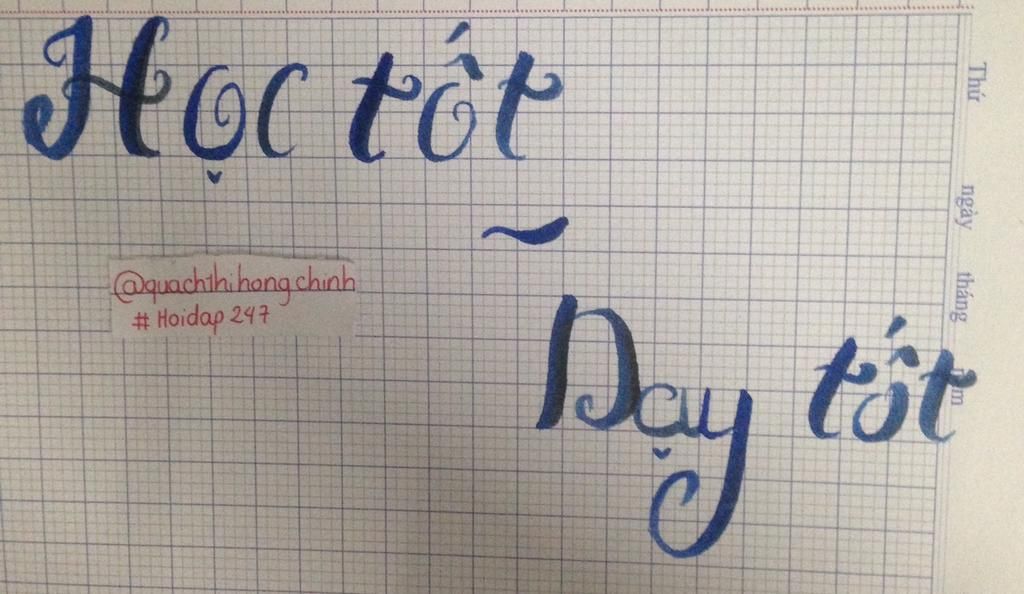 Học tốt
~
Dạy tốt
@quachthihongchinh
# Hoidap 247
Thứ ngày tháng năm